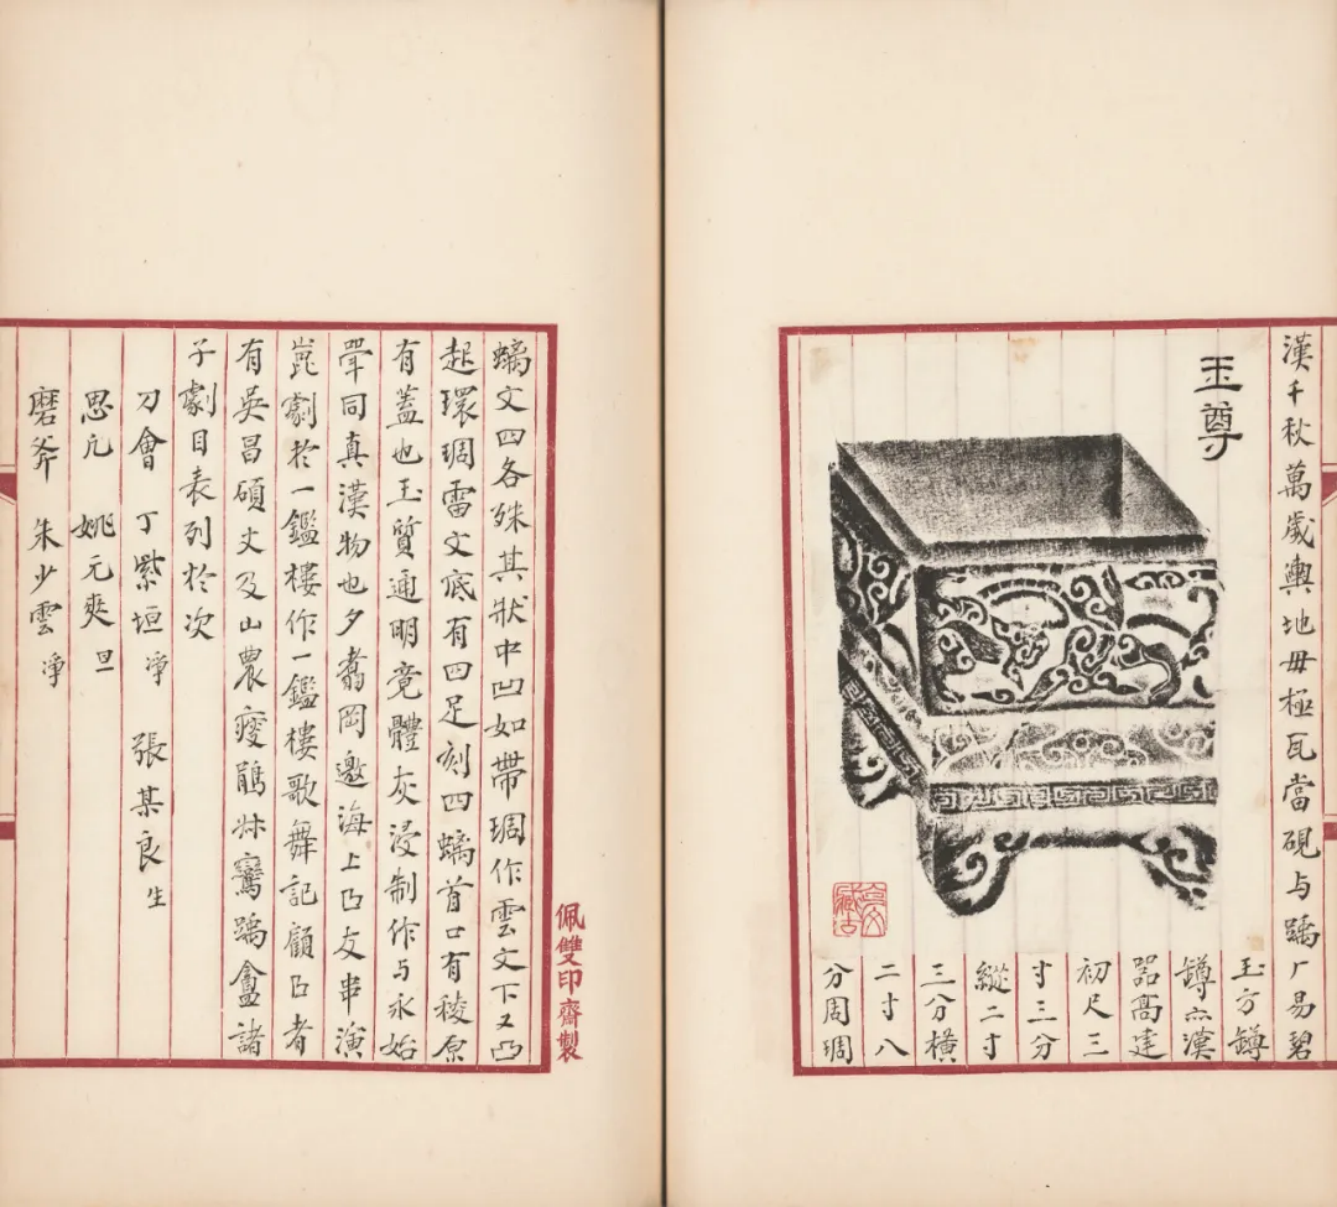 漢千秋萬歲輿地毋極瓦當硯与蹋厂易碧
玉方罇
罇亦漢
器高建
初尺三
寸三分
縱二寸
三分橫
二寸八
分周琱
玉尊
螭文四各殊其狀中凹如帶琱作雲文下又凸
起環琱雷文底有四足刻四螭首口有稜原
有蓋也玉質通明竟體灰浸制作与永始
斝同真漢物也夕翥岡邀海上凸友串演
崑劇於一鑑樓作一鑑樓歌舞記顧凸者
有吳昌碩丈及山農瘦鵑冰鶯蹋盦諸
子劇目表列於次
刀會 丁紫垣淨 張某良生
思凡 姚元爽旦
磨斧 朱少雲淨
佩雙印齋製